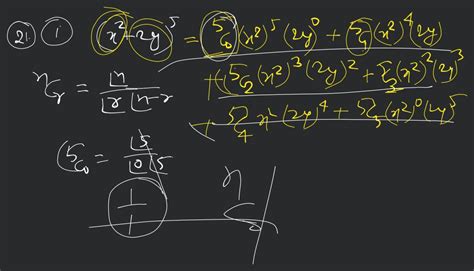 21. i (x² - 2y)⁵ = ⁵C₀ (x²)⁵ (2y)⁰ + ⁵C₁ (x²)⁴ (2y)
+ (⁵C₂ (x²)³ (2y)² + ⁵C₃ (x²)² (2y)³
+ ⁵C₄ x² (2y)⁴ + ⁵C₅ (x²)⁰ (2y)⁵
ⁿCᵣ = |n / |r |n-r
(⁵C₀ = |5 / |0 |5
1/1